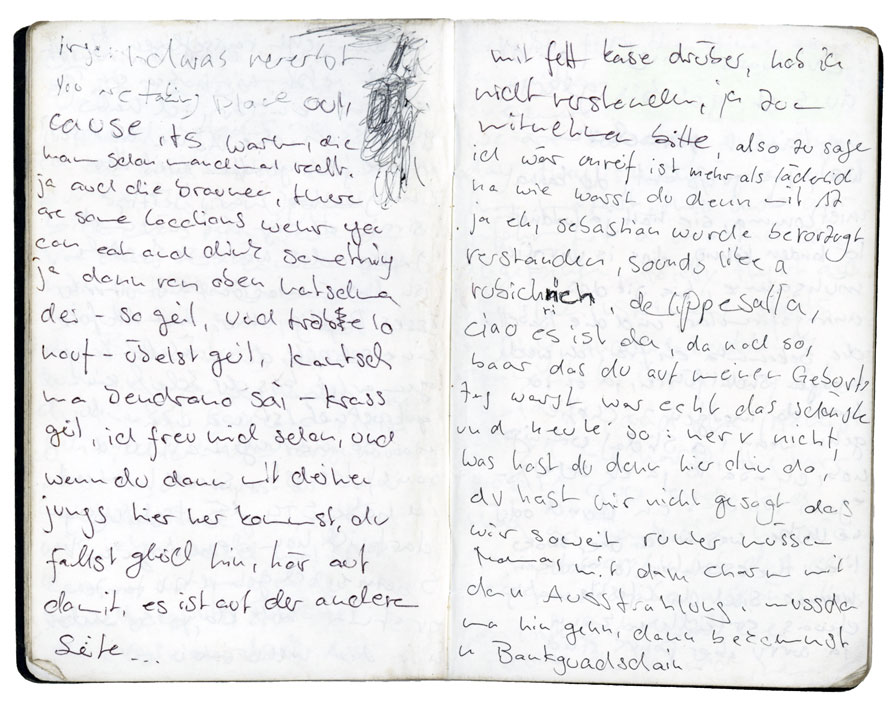 You are taking place out,
cause its warm, die
man schon manchmal recht.
ja auch die braunen, there
are some locations wehr you
can eat and drink something
ja dann von oben hatschma
der - so geil, und
houf - übelst geil,
ma Dendrano sai - krass
geil, ich freu mich schon, und
wenn du dann mit deinen
jungs hier her kommst, du
fallst gleich hin, hör auf
damit, es ist auf der anderen
Seite ...
mit fett käse drüber, hab ich
nicht verstanden, ja zum
mitnehmen bitte, also zu sage
ich wär unreif ist mehr als lächerlich
na wie warst du denn mit 17
ja eh, sebastian wurde bevorzugt
verstanden, sounds like a
ciao es ist da, da noch so,
paar das du auf meinen Geburts
tag warst war echt das schönste
und heute so: nerv nicht,
was hast du denn hier drin do,
du hast mir nicht gesagt dass
wir soweit runter müssen
mit dam charm mit
dann Ausstrahlung mussda
ma hin gehn, dann bekommst
n Bankguadschain